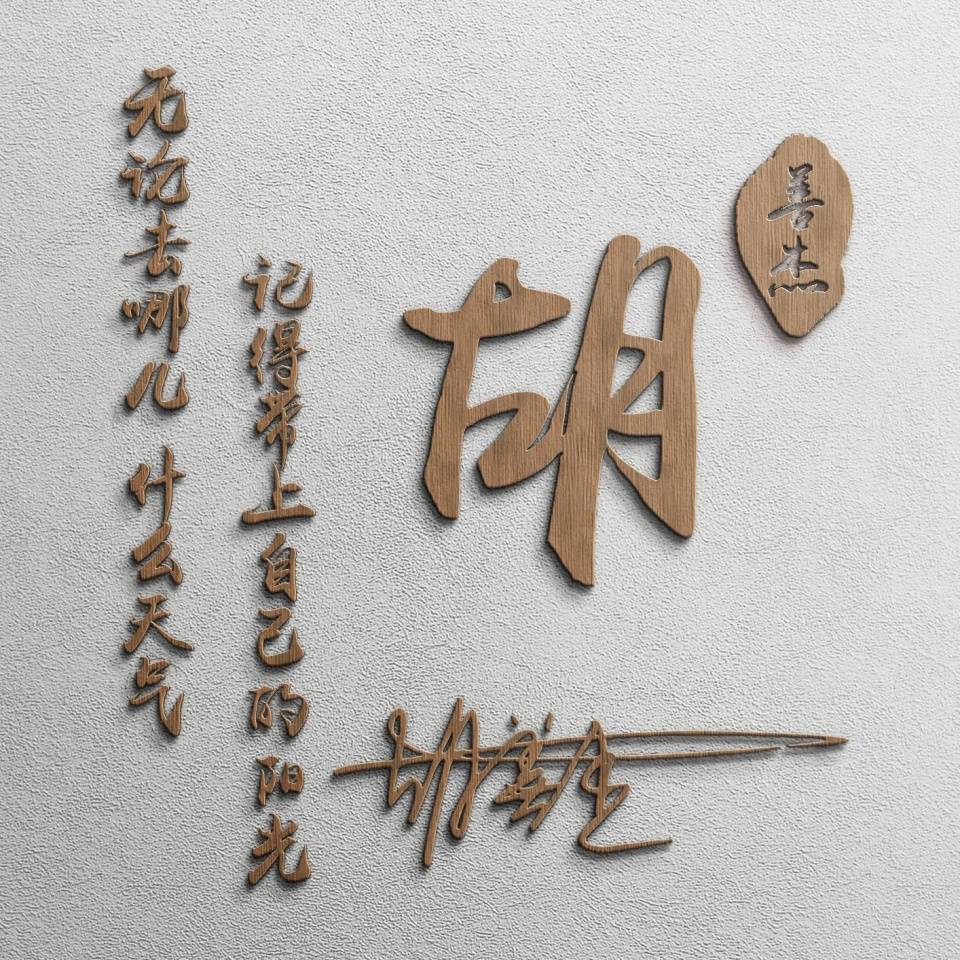 无论去哪儿 什么天气
记得带上自己的阳光
胡
善杰
胡善杰